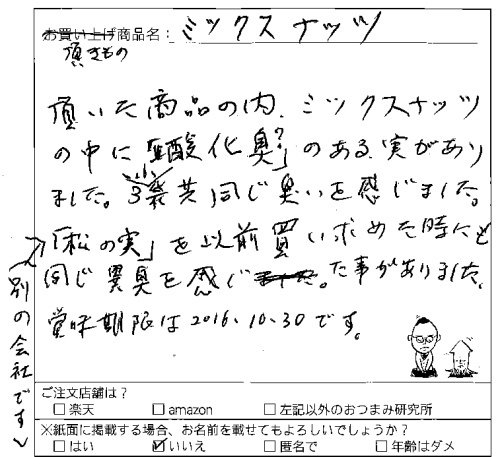 お買い上げ商品名：ミックスナッツ
頂きもの
頂いた商品の内、ミックスナッツ
の中に「酸化臭?」のある、実があり
ました。3袋共同じ臭いを感じました。
「松の実」を以前買い求めた時にも
同じ異臭を感じた事がありました。
賞味期限は2016.10.30です。
別の会社です
ご注文店舗は？
□ 楽天 □ amazon □ 左記以外のおつまみ研究所
※紙面に掲載する場合、お名前を載せてもよろしいでしょうか？
□ はい ☑ いいえ □ 匿名で □ 年齢はダメ